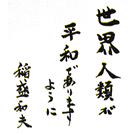 世界人類が
平和でありますように
稲盛和夫